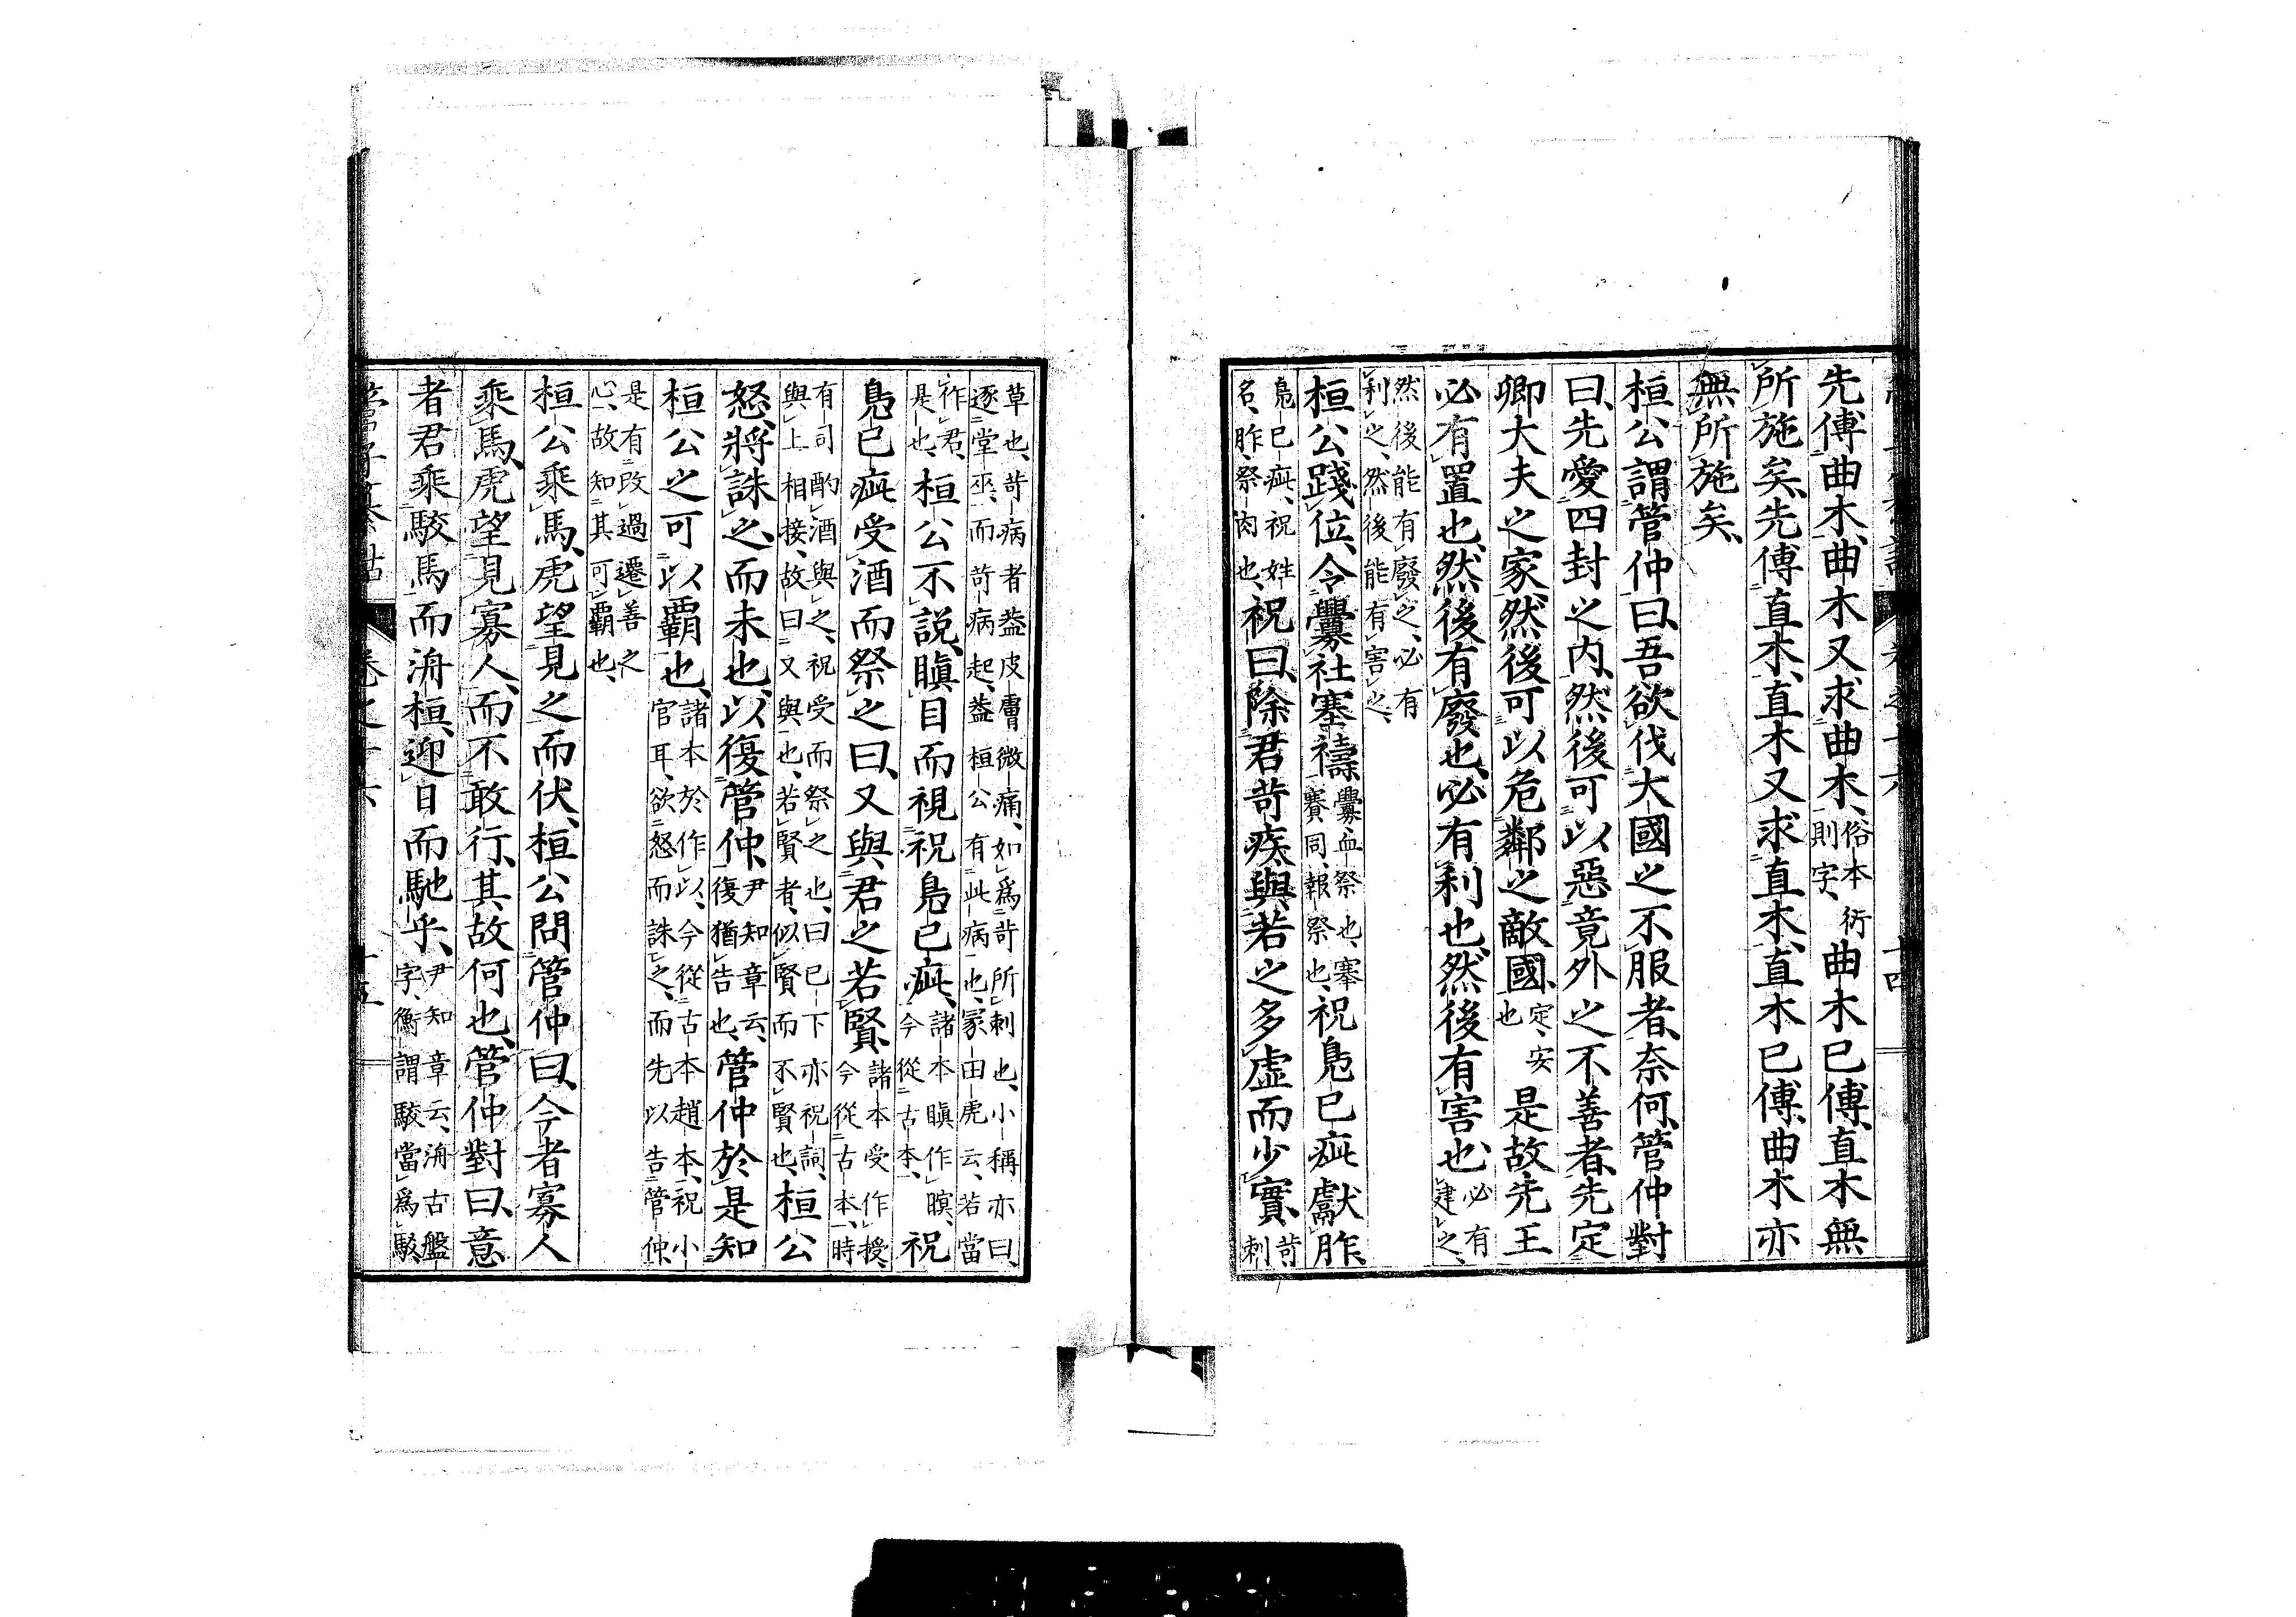 先傅曲木、曲木又求曲木、俗本衍則字、曲木已傅、直木無
所施矣、先傅直木、直木又求直木、直木已傅、曲木亦
無所施矣、
桓公謂管仲曰、吾欲伐大國之不服者、奈何、管仲對
曰、先愛四封之内、然後可以惡竟外之不善者、先定
卿大夫之家、然後可以危鄰之敵國、定、安也是故先王
必有置也、然後有廢也、必有利也、然後有害也、必有建之、
然後能有廢之、必有利之、然後能有害之、
桓公踐位、令釁社塞禱、釁、血祭也、塞賽同、報祭也、祝鳧已疵獻胙、
鳧已疵、祝姓名、胙、祭肉也、祝曰、除君苛疾、與若之多虛而少實、苛刺
草也、苛病者蓋皮膚微痛、如爲苛所刺也、小稱亦曰、逐堂巫、而苛病起、蓋桓公有此病也、冡田虎云、若當
作君、是也、桓公不說、瞋目而視祝鳧已疵、諸本瞋作瞑、今從古本、祝
鳧已疵受酒而祭之曰、又與君之若賢、諸本受作授、今從古本、時
有司酌酒與之、祝受而祭之也、曰已下亦祝詞、與上相接、故曰又與也、若賢者、似賢而不賢也、桓公
怒、將誅之、而未也、以復管仲、尹知章云、復猶告也、管仲於是知
桓公之可以覇也、諸本於作以、今從古本趙本、祝小官耳、欲怒而誅之、而先以告管仲、
是有改過遷善之心、故知其可覇也、
桓公乘馬、虎望見之而伏、桓公問管仲曰、今者寡人
乘馬、虎望見寡人、而不敢行、其故何也、管仲對曰、意
者君乘駮馬而洀桓、迎日而馳乎、尹知章云、洀古盤字、衡謂駮當爲駁、
卷之十六